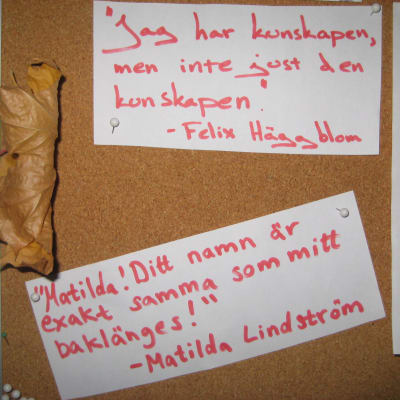 "Jag har kunskapen,
men inte just den
kunskapen."
- Felix Häggblom
"Matilda! Ditt namn är
exakt samma som mitt
baklänges!"
- Matilda Lindström